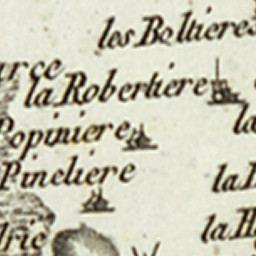 les Boltieres
arce
la Robertiere
Popiniere
la
Pineliere
la
la H
dric